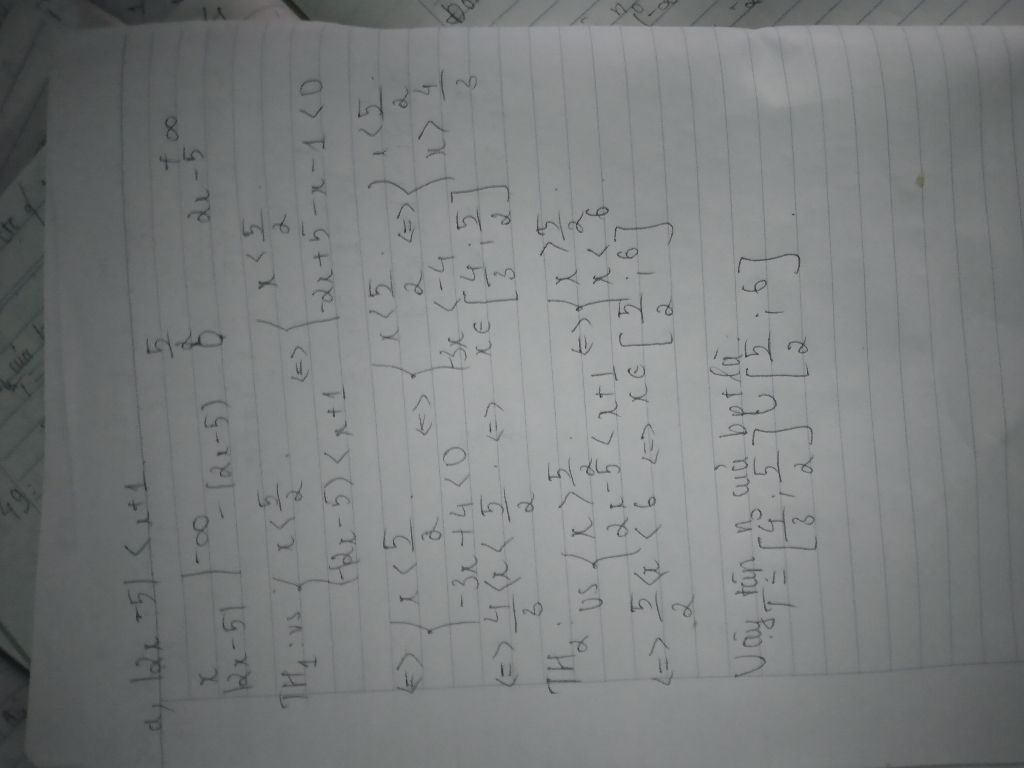 a, |2x-5| < x+1
x | -∞ 5/2 +∞
|2x-5| | -(2x-5) 0 2x-5
TH1: vs { x < 5/2 <=> { x < 5/2
{ -(2x-5) < x+1 { -2x+5-x-1 < 0
<=> { x < 5/2 <=> { x < 5/2 <=> { x < 5/2
{ -3x+4 < 0 { -3x < -4 { x > 4/3
<=> 4/3 < x < 5/2 <=> x ∈ [4/3 ; 5/2]
TH2: vs { x > 5/2 <=> { x > 5/2
{ 2x-5 < x+1 { x < 6
<=> 5/2 < x < 6 <=> x ∈ [5/2 ; 6]
Vậy tập no của bpt là
T = [4/3 ; 5/2] [5/2 ; 6]